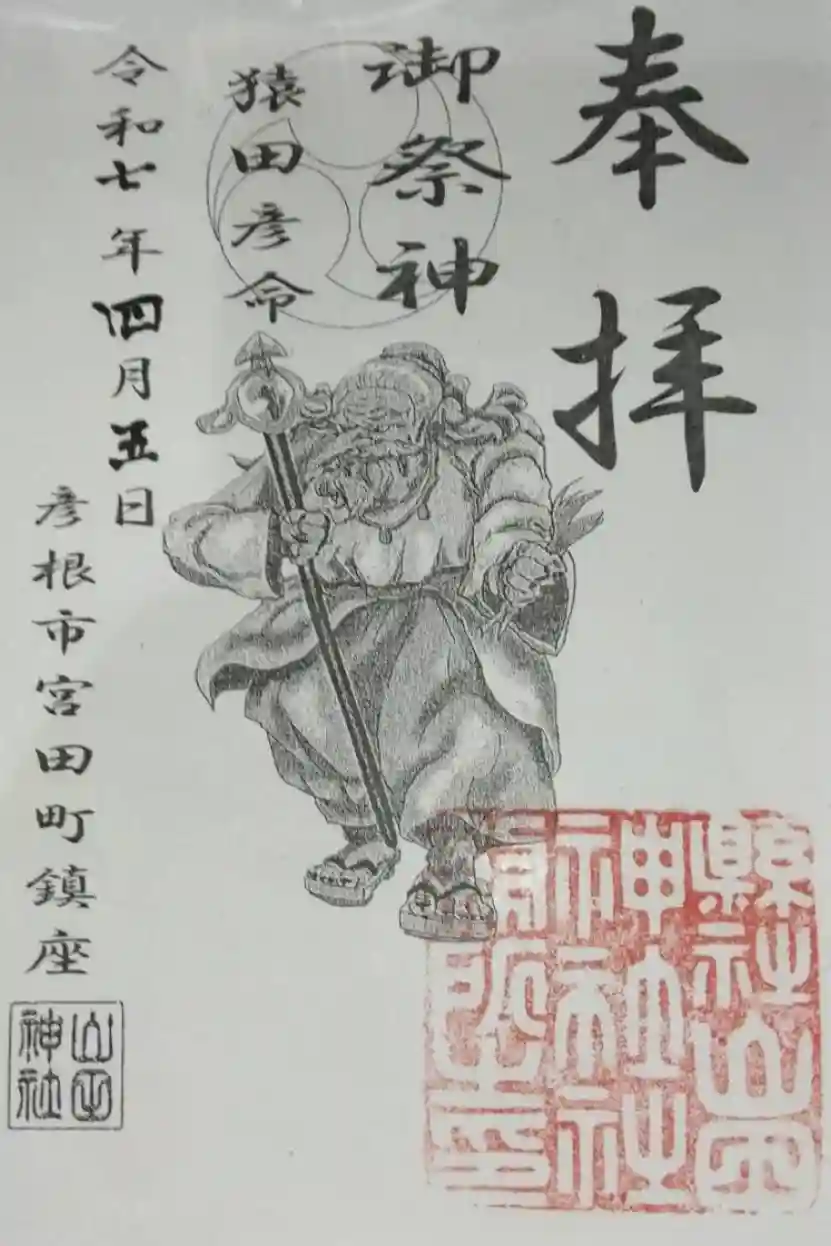 奉拝
御祭神
猿田彦命
令和七年四月五日
彦根市宮田町鎮座
山田
神社
縣社山田
神社